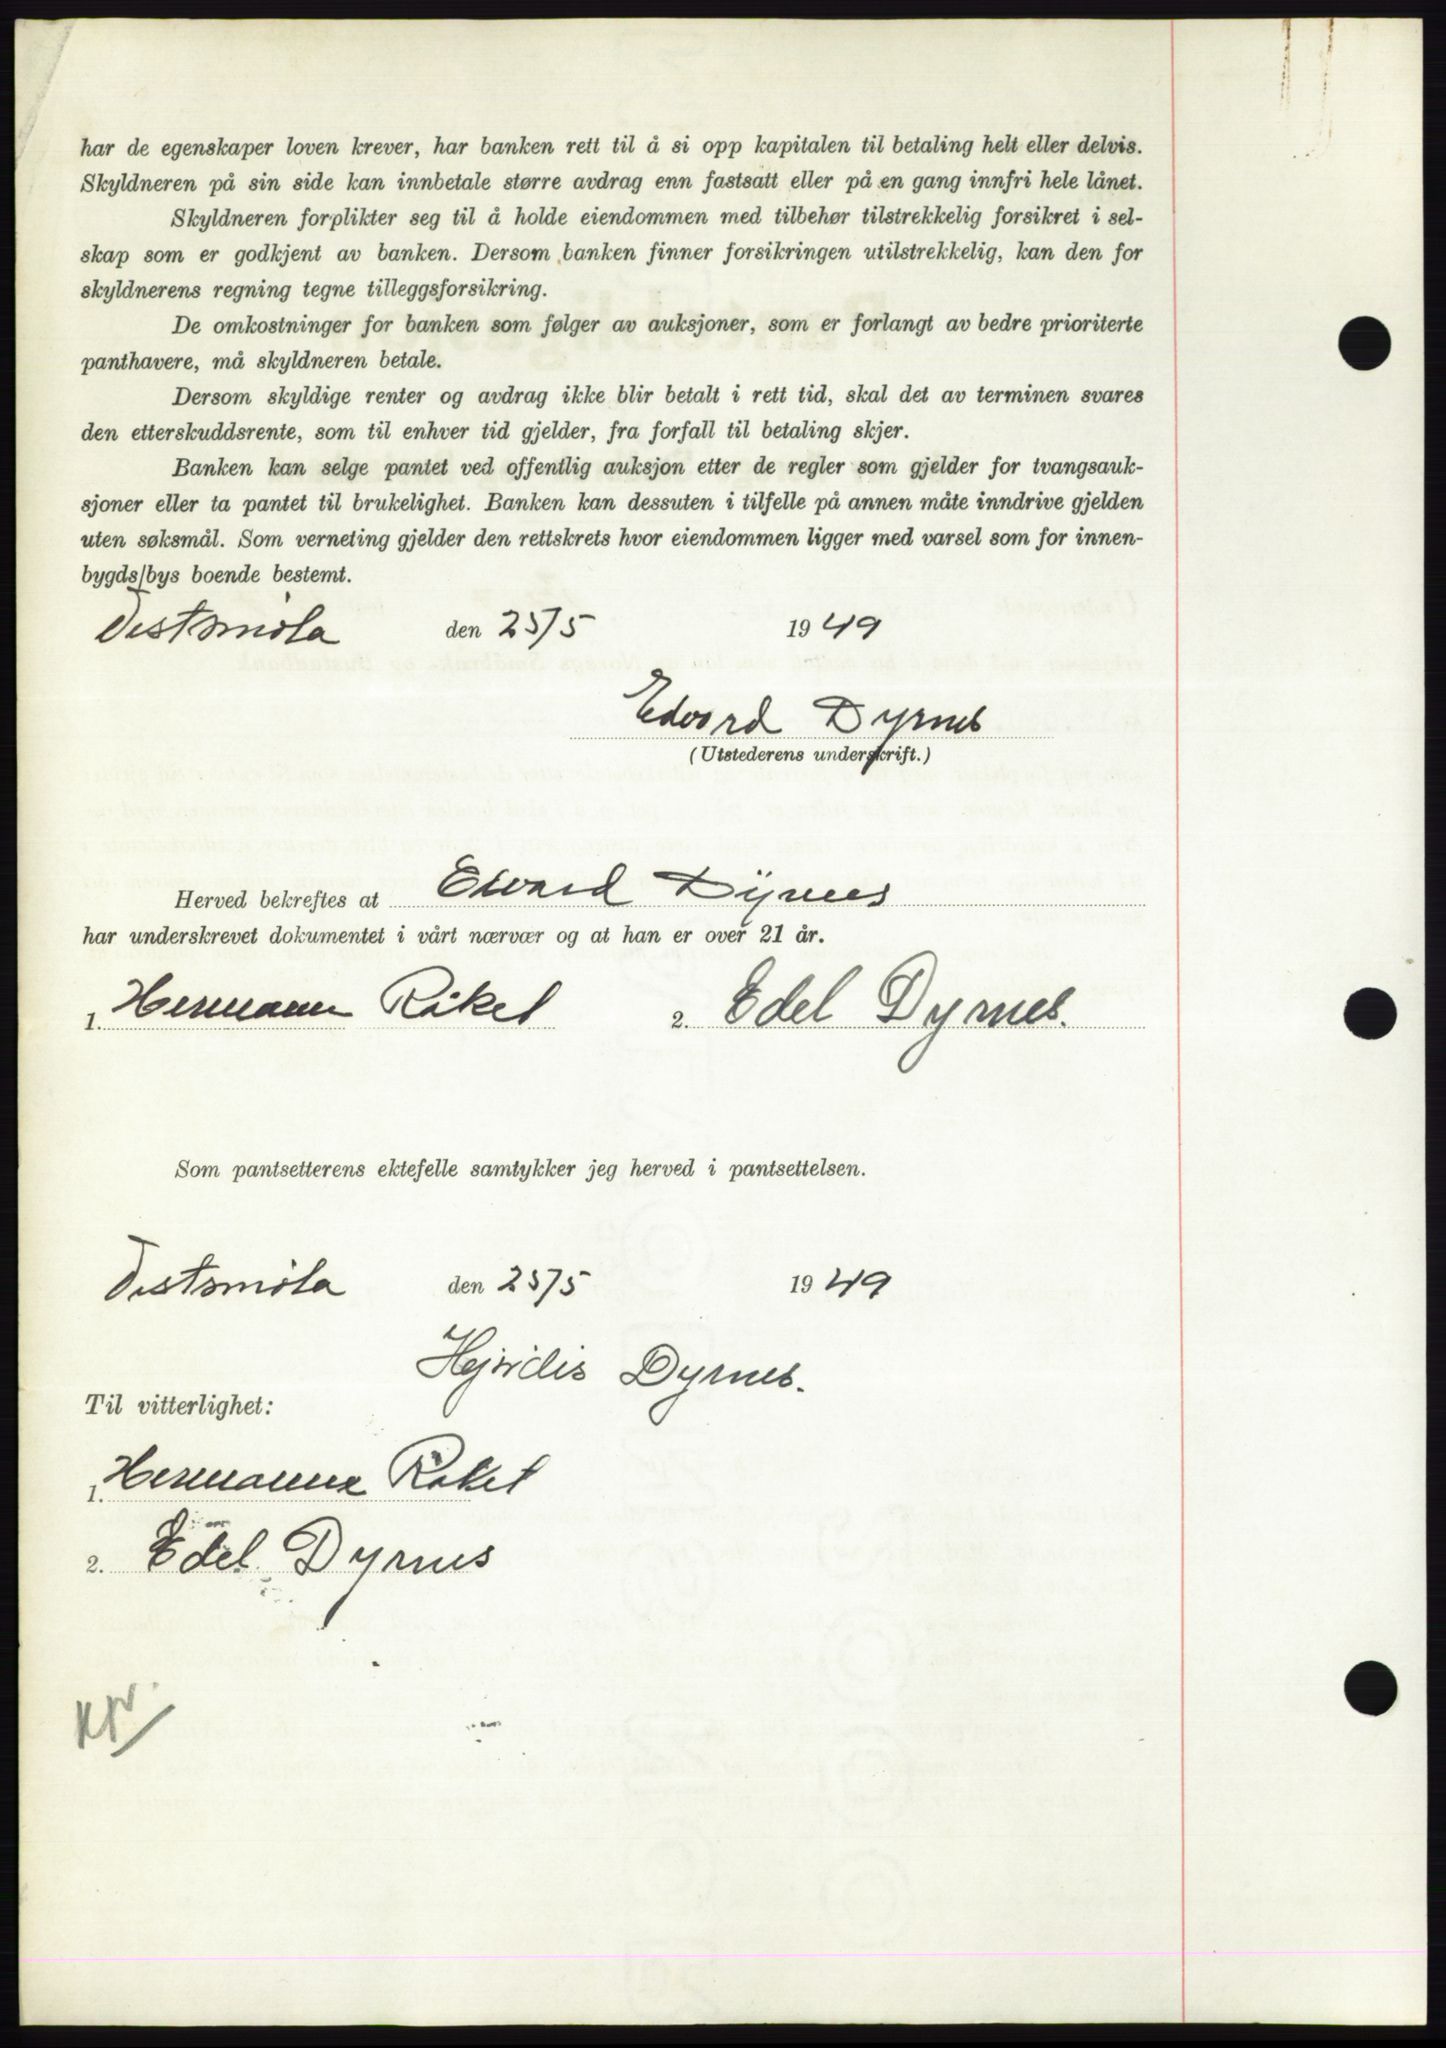 har de egenskaper loven krever, har banken rett til å si opp kapitalen til betaling helt eller delvis.
Skyldneren på sin side kan innbetale større avdrag enn fastsatt eller på en gang innfri hele lånet.
Skyldneren forplikter seg til å holde eiendommen med tilbehør tilstrekkelig forsikret i sel-
skap som er godkjent av banken. Dersom banken finner forsikringen utilstrekkelig, kan den for
skyldnerens regning tegne tilleggsforsikring.
De omkostninger for banken som følger av auksjoner, som er forlangt av bedre prioriterte
panthavere, må skyldneren betale.
Dersom skyldige renter og avdrag ikke blir betalt i rett tid, skal det av terminen svares
den etterskuddsrente, som til enhver tid gjelder, fra forfall til betaling skjer.
Banken kan selge pantet ved offentlig auksjon etter de regler som gjelder for tvangsauk-
sjoner eller ta pantet til brukelighet. Banken kan dessuten i tilfelle på annen måte inndrive gjelden
uten søksmål. Som verneting gjelder den rettskrets hvor eiendommen ligger med varsel som for innen-
bygds/bys boende bestemt.
Vestsmøla den 25/5 1949
Edvard Dyrnes
(Utstederens underskrift.)
Herved bekreftes at Edvard Dyrnes
har underskrevet dokumentet i vårt nærvær og at han er over 21 år.
1. Hermann Råket 2. Edel Dyrnes.
Som pantsetterens ektefelle samtykker jeg herved i pantsettelsen.
Vestsmøla den 25/5 1949
Hjørdis Dyrnes.
Til vitterlighet:
1. Hermann Råket
2. Edel Dyrnes